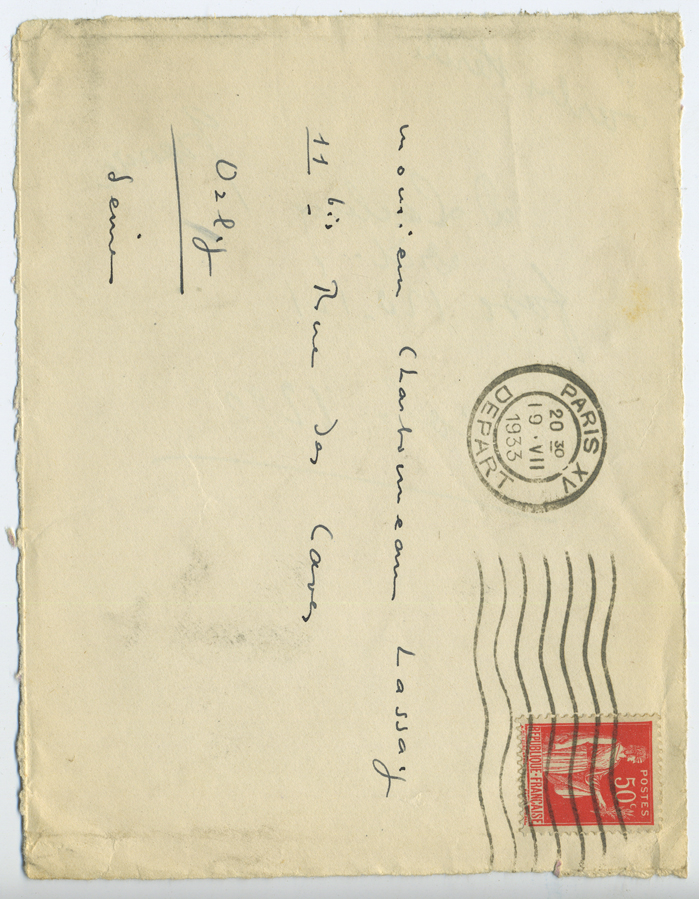 PARIS XV
20 30
19 · VII
1933
DEPART
POSTES
50 c
REPUBLIQUE FRANÇAISE
Monsieur Charbonneau Lassay
11 bis Rue des Caves
Orly
Seine